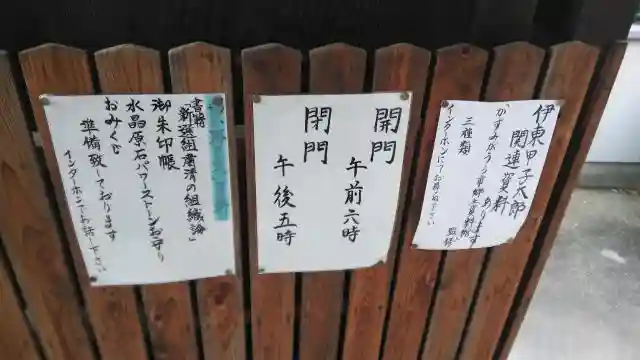 伊東甲子太郎
関連資料
あります
三種類
インターホンにてお尋ね下さい
開門
午前六時
閉門
午後五時
新選組粛清の組織論」
御朱印帳
水晶原石パワーストーンお守り
おみくじ
準備致しております
インターホンでお話し下さい